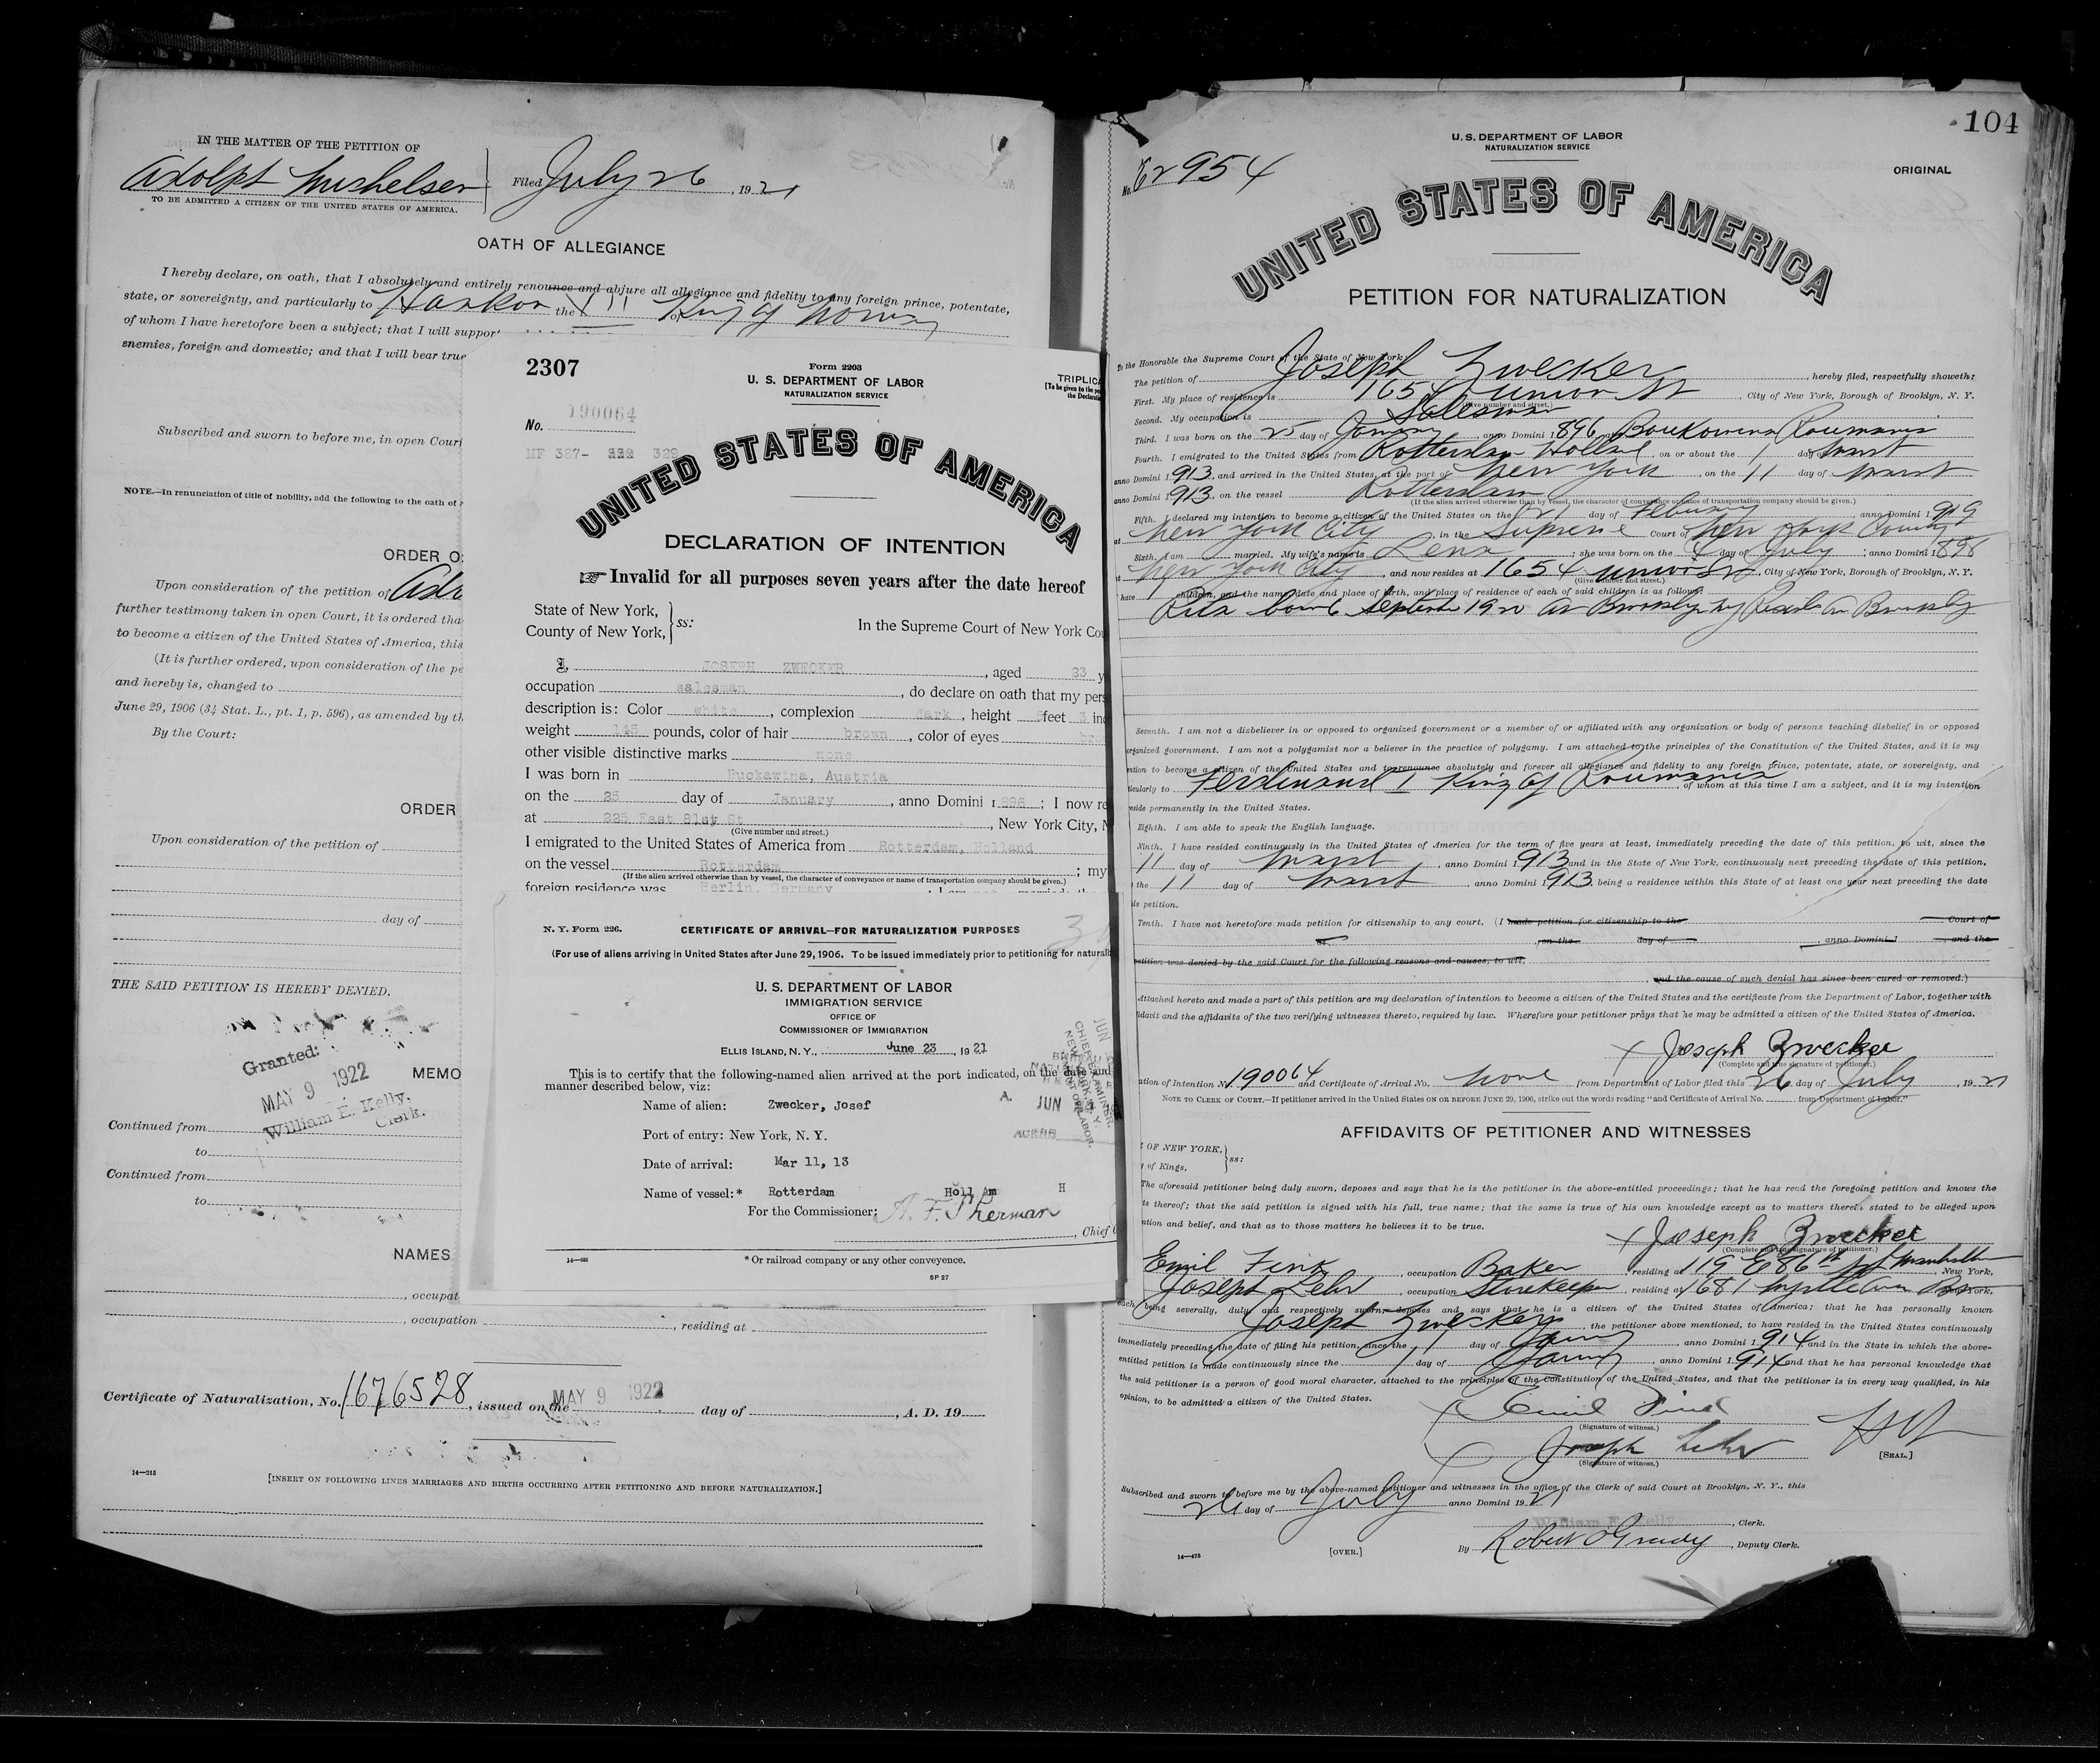 IN THE MATTER OF THE PETITION OF
Adolph
Filed July 26, 1921
TO BE ADMITTED A CITIZEN OF THE UNITED STATES OF AMERICA.
OATH OF ALLEGIANCE
I hereby declare, on oath, that I absolutely and entirely renounce and abjure all allegiance and fidelity to any foreign prince, potentate,
state, or sovereignty, and particularly to Haakon the VII of King of Norway
of whom I have heretofore been a subject; that I will suppor
enemies, foreign and domestic; and that I will bear true
Subscribed and sworn to before me, in open Cour
NOTE.—In renunciation of title of nobility, add the following to the oath of
ORDER O
Upon consideration of the petition of
further testimony taken in open Court, it is ordered tha
to become a citizen of the United States of America, this
(It is further ordered, upon consideration of the pe
and hereby is, changed to
June 29, 1906 (34 Stat. L., pt. 1, p. 596), as amended by th
By the Court:
ORDER
Upon consideration of the petition of
day of
THE SAID PETITION IS HEREBY DENIED.
Granted:
MAY 9 1922
William E. Kelly,
Clerk.
MEMO
Continued from
to
Continued from
to
NAMES
, occupat
, occupation , residing at
Certificate of Naturalization, No. 1676528, issued on the MAY 9 1922 day of , A. D. 19
14—215
[INSERT ON FOLLOWING LINES MARRIAGES AND BIRTHS OCCURRING AFTER PETITIONING AND BEFORE NATURALIZATION.]
2307
Form 2203
U. S. DEPARTMENT OF LABOR
NATURALIZATION SERVICE
TRIPLICA
[To be given to the
the Declara
No. 190064
MF 387- 329
UNITED STATES OF AMERICA
DECLARATION OF INTENTION
☞ Invalid for all purposes seven years after the date hereof
State of New York,
County of New York, } ss:
In the Supreme Court of New York Co
I, JOSEPH ZWECKER, aged 23 y
occupation salesman, do declare on oath that my pers
description is: Color white, complexion dark, height 5 feet 3 inc
weight 145 pounds, color of hair brown, color of eyes bro
other visible distinctive marks none
I was born in Buckawina, Austria
on the 25 day of January, anno Domini 1896; I now re
at 225 East 81st St, New York City, N
(Give number and street.)
I emigrated to the United States of America from Rotterdam, Holland
on the vessel Rotterdam; my
(If the alien arrived otherwise than by vessel, the character of conveyance or name of transportation company should be given.)
foreign residence was Berlin, Germany
N. Y. Form 226.
CERTIFICATE OF ARRIVAL—FOR NATURALIZATION PURPOSES
(For use of aliens arriving in United States after June 29, 1906. To be issued immediately prior to petitioning for naturali
U. S. DEPARTMENT OF LABOR
IMMIGRATION SERVICE
OFFICE OF
COMMISSIONER OF IMMIGRATION
ELLIS ISLAND, N. Y., June 23, 1921
This is to certify that the following-named alien arrived at the port indicated, on the date and
manner described below, viz:
Name of alien: Zwecker, Josef
Port of entry: New York, N. Y.
Date of arrival: Mar 11, 13
Name of vessel:* Rotterdam Holl Am H
For the Commissioner: A. F. Sherman
, Chief C
JUN
*Or railroad company or any other conveyence.
SP 27
104
U. S. DEPARTMENT OF LABOR
NATURALIZATION SERVICE
No. 62954
ORIGINAL
UNITED STATES OF AMERICA
PETITION FOR NATURALIZATION
To the Honorable the Supreme Court of the State of New York:
The petition of Joseph Zwecker, hereby filed, respectfully showeth:
First. My place of residence is 1654 Union St, City of New York, Borough of Brooklyn, N. Y.
(Give number and street.)
Second. My occupation is Salesman
Third. I was born on the 25 day of January, anno Domini 1896 Boukowina Roumania
Fourth. I emigrated to the United States from Rotterdam Holland, on or about the 1 day of March
anno Domini 1913, and arrived in the United States, at the port of New York, on the 11 day of March
anno Domini 1913, on the vessel Rotterdam
(If the alien arrived otherwise than by vessel, the character of conveyance or name of transportation company should be given.)
Fifth. I declared my intention to become a citizen of the United States on the 21 day of February, anno Domini 1919
at New York City, in the Supreme Court of New York County
Sixth. I am married. My wife's name is Lena; she was born on the 4 day of July; anno Domini 1898
at New York City, and now resides at 1654 Union St, City of New York, Borough of Brooklyn, N. Y.
(Give number and street.)
have 1 children, and the name, date and place of birth, and place of residence of each of said children is as follows:
Rita born 6 September 1920 at Brooklyn NY Resides at Brooklyn
Seventh. I am not a disbeliever in or opposed to organized government or a member of or affiliated with any organization or body of persons teaching disbelief in or opposed
organized government. I am not a polygamist nor a believer in the practice of polygamy. I am attached to the principles of the Constitution of the United States, and it is my
ntion to become a citizen of the United States and to renounce absolutely and forever all allegiance and fidelity to any foreign prince, potentate, state, or sovereignty, and
ticularly to Ferdinand I King of Roumania, of whom at this time I am a subject, and it is my intention
reside permanently in the United States.
Eighth. I am able to speak the English language.
Ninth. I have resided continuously in the United States of America for the term of five years at least, immediately preceding the date of this petition, to wit, since the
11 day of March, anno Domini 1913 and in the State of New York, continuously next preceding the date of this petition,
the 11 day of March, anno Domini 1913, being a residence within this State of at least one year next preceding the date
is petition.
Tenth. I have not heretofore made petition for citizenship to any court. (I made petition for citizenship to the Court of
at on the day of , anno Domini 1 , and the
petition was denied by the said Court for the following reasons and causes, to wit,
, and the cause of such denial has since been cured or removed.)
Attached hereto and made a part of this petition are my declaration of intention to become a citizen of the United States and the certificate from the Department of Labor, together with
idavit and the affidavits of the two verifying witnesses thereto, required by law. Wherefore your petitioner prays that he may be admitted a citizen of the United States of America.
X Joseph Zwecker
(Complete and true signature of petitioner.)
ation of Intention No. 190064 and Certificate of Arrival No. none from Department of Labor filed this 26 day of July, 1921
NOTE TO CLERK OF COURT.—If petitioner arrived in the United States ON OR BEFORE JUNE 29, 1906, strike out the words reading "and Certificate of Arrival No. from Department of Labor."
AFFIDAVITS OF PETITIONER AND WITNESSES
OF NEW YORK,
of Kings, } ss:
The aforesaid petitioner being duly sworn, deposes and says that he is the petitioner in the above-entitled proceedings; that he has read the foregoing petition and knows the
ts thereof; that the said petition is signed with his full, true name; that the same is true of his own knowledge except as to matters therein stated to be alleged upon
ation and belief, and that as to those matters he believes it to be true.
X Joseph Zwecker
(Complete and true signature of petitioner.)
Emil Fink, occupation Baker, residing at 119 E 86th St Manhattan, New York,
Joseph Lehr, occupation Storekeeper, residing at 1681 Myrtle Ave York,
each being severally, duly and respectively sworn, deposes and says that he is a citizen of the United States of America; that he has personally known
Joseph Zwecker, the petitioner above mentioned, to have resided in the United States continuously
immediately preceding the date of filing his petition, since the 1 day of January, anno Domini 1914, and in the State in which the above-
entitled petition is made continuously since the 1 day of January, anno Domini 1914 and that he has personal knowledge that
the said petitioner is a person of good moral character, attached to the principles of the Constitution of the United States, and that the petitioner is in every way qualified, in his
opinion, to be admitted a citizen of the United States.
X Emil Fink
(Signature of witness.)
X Joseph Lehr
(Signature of witness.)
[SEAL.]
Subscribed and sworn to before me by the above-named petitioner and witnesses in the office of the Clerk of said Court at Brooklyn, N. Y., this
26 day of July anno Domini 1921
William E. Kelly, Clerk.
By Robert O'Grady, Deputy Clerk.
14—475
[OVER.]